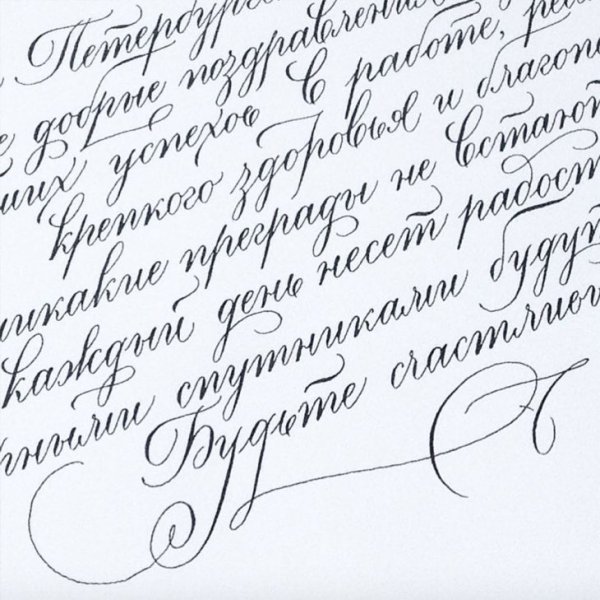 Петербурга
добрые поздравления
успехов в работе,
крепкого здоровья и благоп
никакие преграды не встают
каждый день несет радост
ными спутниками будут
Будьте счастливы